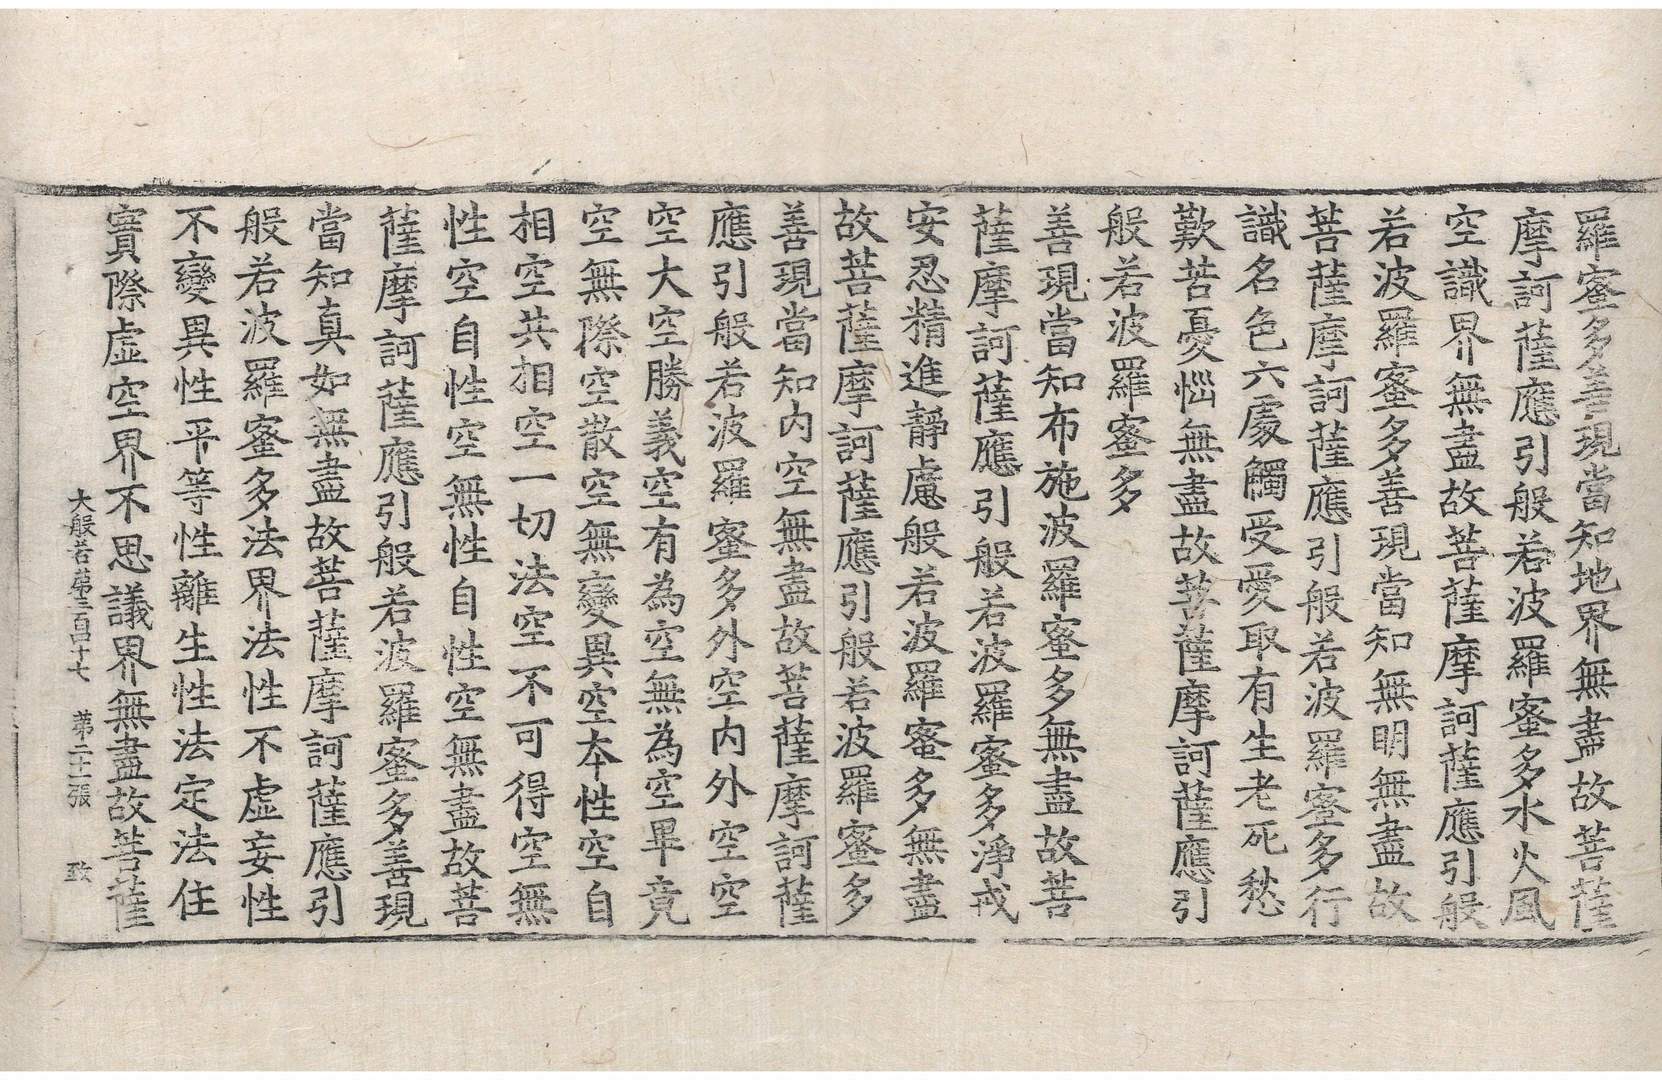 羅蜜多善現當知地界無盡故菩薩
摩訶薩應引般若波羅蜜多水火風
空識界無盡故菩薩摩訶薩應引般
若波羅蜜多善現當知無明無盡故
菩薩摩訶薩應引般若波羅蜜多行
識名色六處觸受愛取有生老死愁
歎苦憂惱無盡故菩薩摩訶薩應引
般若波羅蜜多
善現當知布施波羅蜜多無盡故菩
薩摩訶薩應引般若波羅蜜多淨戒
安忍精進靜慮般若波羅蜜多無盡
故菩薩摩訶薩應引般若波羅蜜多
善現當知內空無盡故菩薩摩訶薩
應引般若波羅蜜多外空內外空空
空大空勝義空有為空無為空畢竟
空無際空散空無變異空本性空自
相空共相空一切法空不可得空無
性空自性空無性自性空無盡故菩
薩摩訶薩應引般若波羅蜜多善現
當知真如無盡故菩薩摩訶薩應引
般若波羅蜜多法界法性不虛妄性
不變異性平等性離生性法定法住
實際虛空界不思議界無盡故菩薩
大般若第三百四十七 第二十一張 致